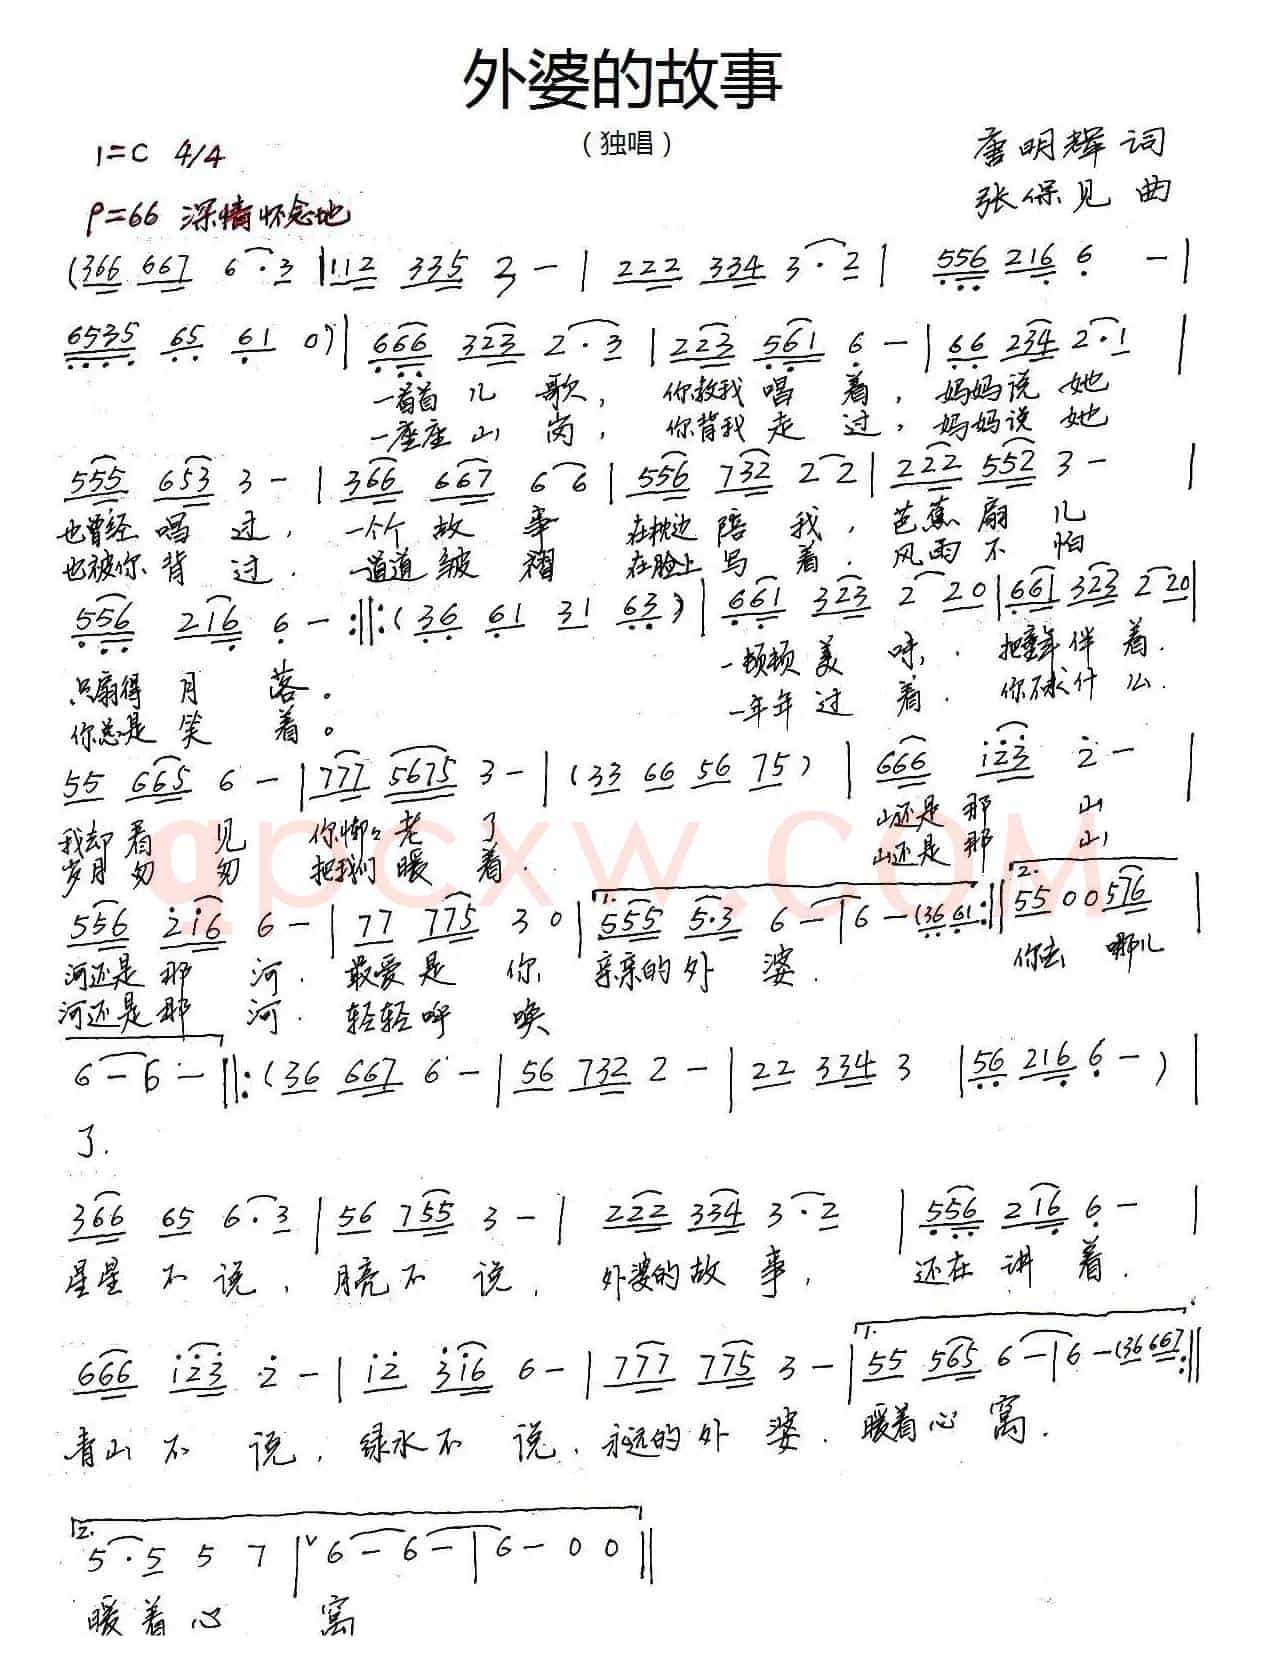 外婆的故事
（独唱）
1=C 4/4
唐明辉 词
张保见 曲
♩=66 深情怀念地
(366 667 6·3 | 112 335 2 — | 222 334 3·2 | 556 216 6 — |
6535 65 61 0) | 666 323 2·3 | 223 561 6 — | 66 234 2·1 |
一首首儿歌, 你教我唱着, 妈妈说她
一座座山岗, 你背我走过, 妈妈说她
555 653 3 — | 366 667 6 6 | 556 732 2 2 | 222 552 3 — |
也曾经唱过, 一个个故事 在枕边陪我, 芭蕉扇儿
也被你背过. 一道道皱褶 在脸上写着. 风雨不怕
556 216 6 — :||: (36 61 31 63) | 661 323 2 20 | 661 323 2 20 |
只扇得月落。 一顿顿美味, 把童年伴着.
你总是笑着。 一年年过着. 你不求什么.
55 665 6 — | 777 5675 3 — | (33 66 56 75) | 666 123 2 — |
我却看见 你慚々老了 山还是那山
岁月匆匆 把我们暖着. 山还是那山
556 216 6 — | 77 775 3 0 | 1. 555 5·3 6 — | 6 — (36 61 :|| 2. 55 0 0 576 |
河还是那河. 最爱是你, 亲亲的外婆. 你去哪儿
河还是那河. 轻轻呼唤
6 — 6 — ||: (36 667 6 — | 56 732 2 — | 22 334 3 | 56 216 6 — ) |
了.
366 65 6·3 | 56 755 3 — | 222 334 3·2 | 556 216 6 — |
星星不说, 月亮不说, 外婆的故事, 还在讲着.
666 123 2 — | 12 316 6 — | 777 775 3 — | 1. 55 565 6 — | 6 — (36 667 :||
青山不说, 绿水不说, 永远的外婆. 暖着心窝.
2. 5·5 5 7 | 6 — 6 — | 6 — 0 0 ||
暖着心窝
qpcxw.COM